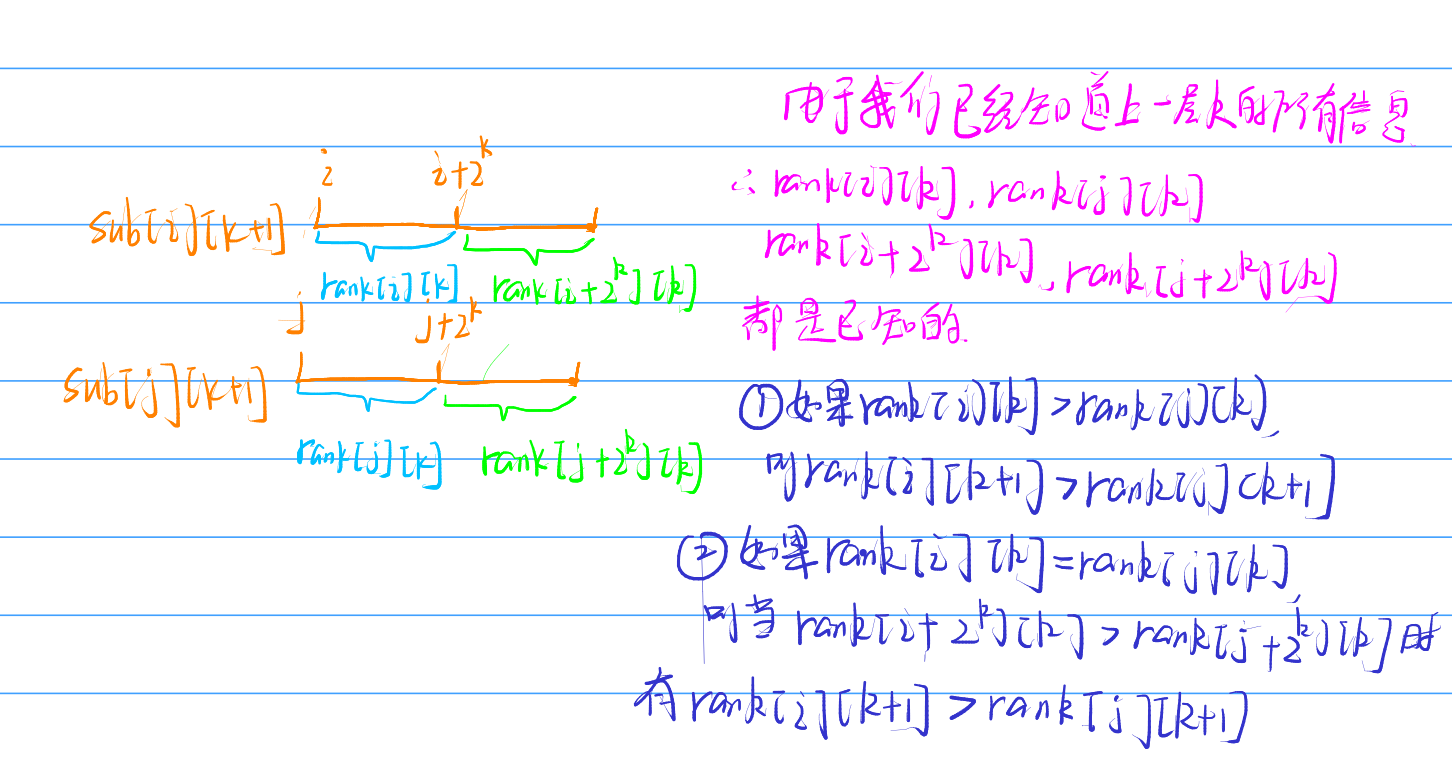 i
i+2^k
sub[i][k+1]
rank[i][k]
rank[i+2^k][k]
j
j+2^k
sub[j][k+1]
rank[j][k]
rank[j+2^k][k]
由于我们已经知道上一层次的所有信息
∴ rank[i][k], rank[j][k]
rank[i+2^k][k], rank[j+2^k][k]
都是已知的.
①如果rank[i][k]>rank[j][k],
则rank[i][k+1]>rank[j][k+1]
②如果rank[i][k]=rank[j][k],
则当 rank[i+2^k][k] > rank[j+2^k][k]时
有rank[i][k+1] > rank[j][k+1]